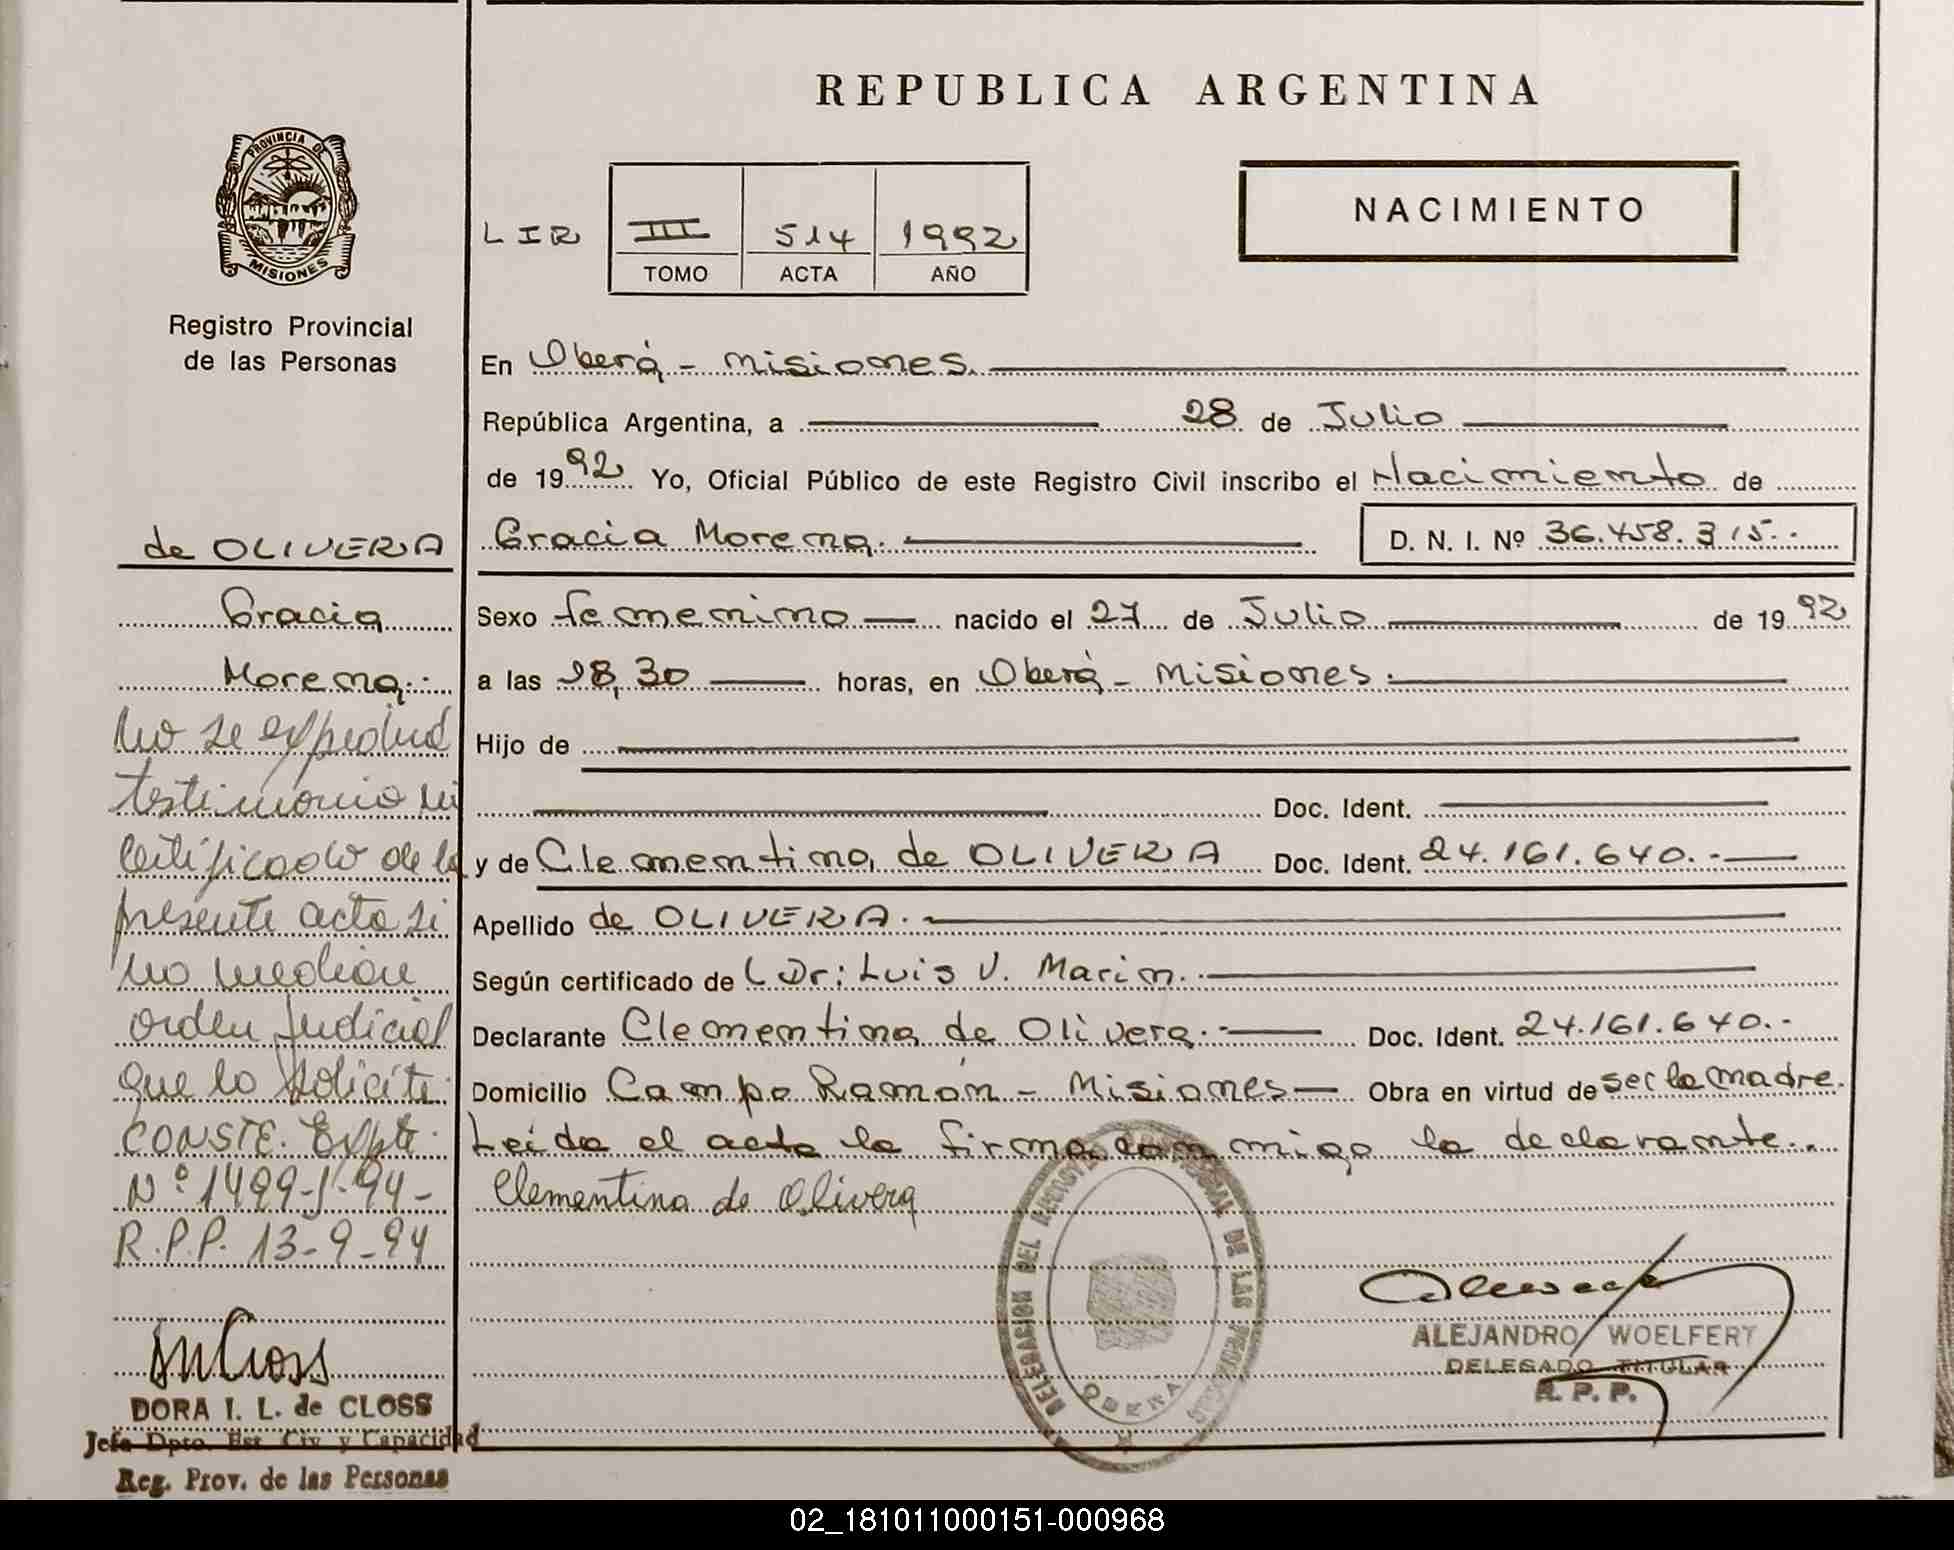 REPUBLICA ARGENTINA
PROVINCIA DE
MISIONES
Registro Provincial
de las Personas
NACIMIENTO
LIR III 514 1992
TOMO ACTA AÑO
En Oberá - Misiones.
República Argentina, a 28 de Julio
de 1992 Yo, Oficial Público de este Registro Civil inscribo el Nacimiento de
Gracia Morena. D. N. I. Nº 36.458.315.-
Sexo femenino nacido el 27 de Julio de 1992
a las 18,30 horas, en Oberá - Misiones.
Hijo de
Doc. Ident.
y de Clementina de OLIVERA Doc. Ident. 24.161.640.-
Apellido de OLIVERA.
Según certificado de Dr: Luis V. Marin.
Declarante Clementina de Olivera.- Doc. Ident. 24.161.640.-
Domicilio Campo Ramón - Misiones Obra en virtud de ser la madre.
Leída el acta la firma conmigo la declarante.
Clementina de Olivera
DELEGACION DEL REGISTRO PROVINCIAL DE LAS PERSONAS
OBERA
ALEJANDRO WOELFERT
DELEGADO TITULAR
R. P. P.
de OLIVERA
Gracia
Morena.
No se expedirá
testimonio ni
certificado de la
presente acta si
no mediare
orden Judicial
que lo solicite.
CONSTE. Expte.
Nº 1499-J-94-
R.P.P. 13-9-94
DORA I. L. de CLOSS
Jefa Dpto. Est. Civ. y Capacidad
Reg. Prov. de las Personas
02_181011000151-000968